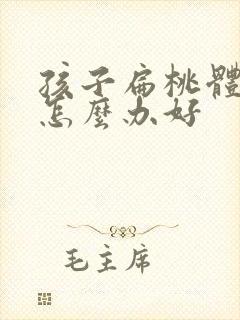 孩子扁桃體
怎麼办好
毛主席